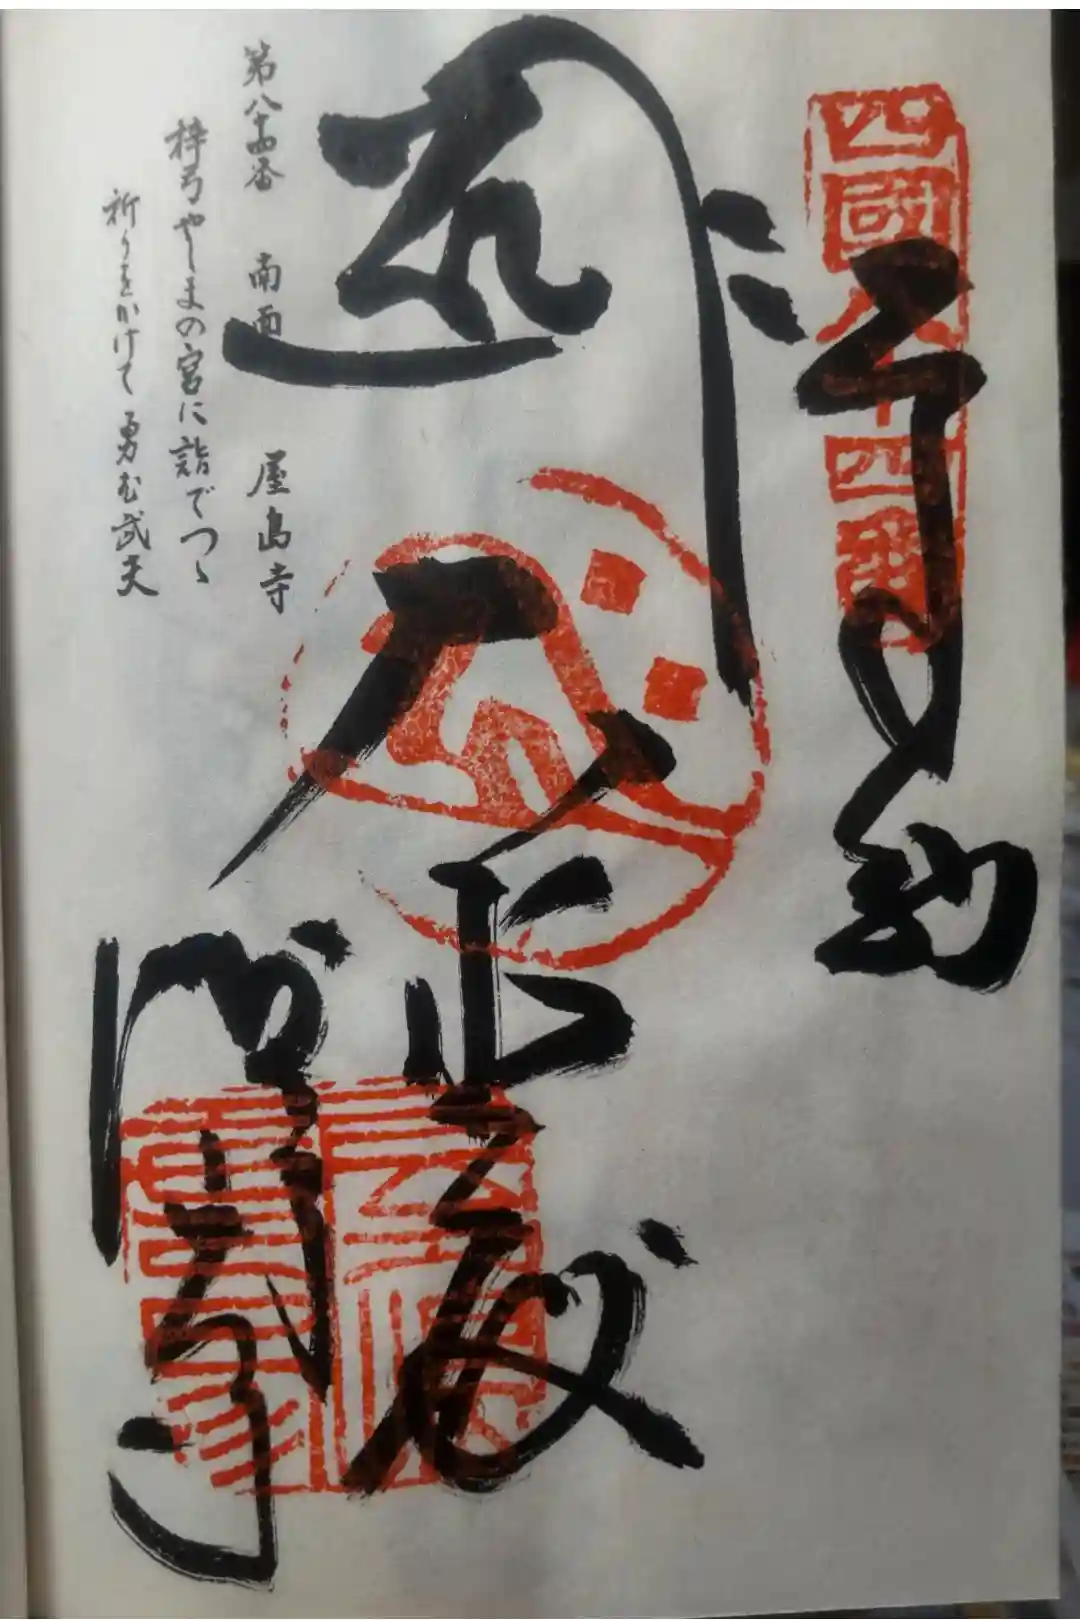 四國八十四番
奉納
大悲殿
屋島寺
第八十四番 南面 屋島寺
梓弓やしまの宮に詣でつゝ
祈りをかけて勇む武夫